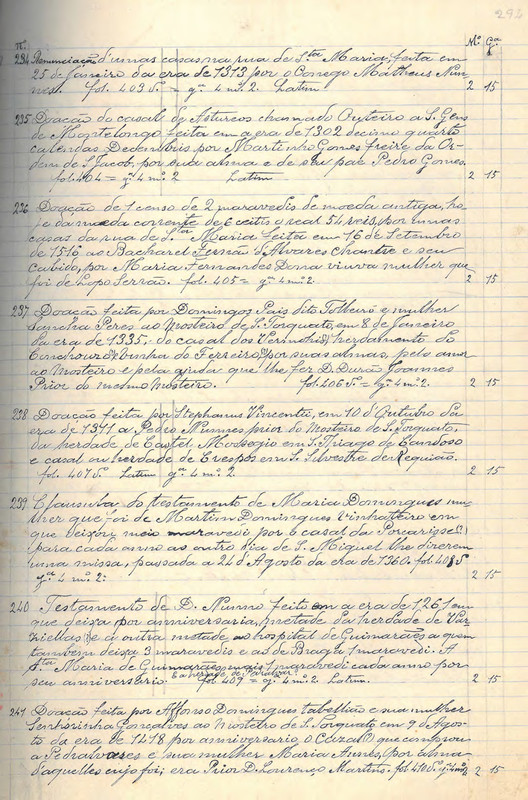 292
Nº Mº Gª
234 Renunciação d'umas casas na rua de Sta Maria, feita em
25 de Janeiro da era de 1313 por o Conego Matheus Nun-
nes. fol. 403 = gª 4 mº 2. Latim 2 15
235 Doação do casal de Astureos chamado Outeiro a S. Gens
de Montelongo feita em a era de 1302 decimo quarto
calendas Decembris, por Martinho Gomes freire da Or-
dem de S. Jacob, por sua alma e de seu pae Pedro Gomes.
fol. 404 = gª 4 mº 2 Latim 2 15
236 Doação de 1 censo de 2 maravedis de moeda antiga, ho-
je da moeda corrente de 6 ceitis o real 54 reis, por umas
casas da rua de Sta Maria feita em 16 de Setembro
de 1516 ao Bacharel Fernã d'Alvares Chantre e seu
cabido, por Maria Fernandes Dona viuva mulher que
foi de Lopo Serrão. fol. 405 = gª 4 mº 2. 2 15
237 Doação feita por Domingos Pais dito Tolheiro e mulher
Sancha Peres ao Mosteiro de S. Torquato, em 8 de Janeiro
da era de 1335, do casal dos e herdamento do
e Vinha do Ferreiro por suas almas, pelo amor
ao Mosteiro e pela ajuda que lhe fez D. Durão Joannes
Prior do mesmo Mosteiro. fol. 406 = gª 4 mº 2. 2 15
238 Doação feita por Stephanus Vincentii, em 10 d'Outubro da
era de 1371 a Pedro Nunnes prior do Mosteiro de S. Torquato,
da herdade de Castel Mossogio em S. Thiago de Candoso
e casal ou herdade de Crespos em S. Silvestre de Requião.
fol. 407 Latim gª 4 mº 2. 2 15
239 Clausula do testamento de Maria Domingues mu-
lher que foi de Martim Domingues Vinhateiro em
que deixou meio maravedi por 6 casal da
para cada anno ao outro dia de S. Miguel lhe direrem
uma missa, passada a 24 d'Agosto da era de 1360. fol. 408
gª 4 mº 2. 2 15
240 Testamento de D. Nunno feito em a era de 1261 em
que deixa por anniversaria, metade da herdade de Var-
ziellas e a outra metade ao hospital de Guimarães a quem
tambem deixa 3 maravedis e as de Braga 1 maravedi. A
Sta Maria de Guimarães mais 1 maravedi cada anno por
seu anniversario. E a herdade de fol. 409 = gª 4 mº 2. Latim. 2 15
241 Doação feita por Affonso Domingues tabellião e sua mulher
Senhorinha Gonçalves ao Mosteiro de S. Torquato em 9 d'Agos-
to da era de 1418 por anniversario o Cazal que comprou
a Pedralvares e sua mulher Maria Annes, por alma
d'aquelles cujo foi; era Prior D. Lourenço Martins. fol. 410 gª 4 mº 2 2 15